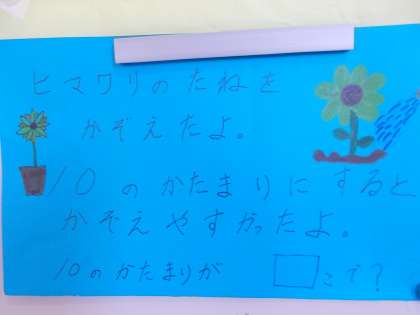 ヒマワリのたねを
かぞえたよ。
10のかたまりにすると
かぞえやすかったよ。
10のかたまりが □こで?